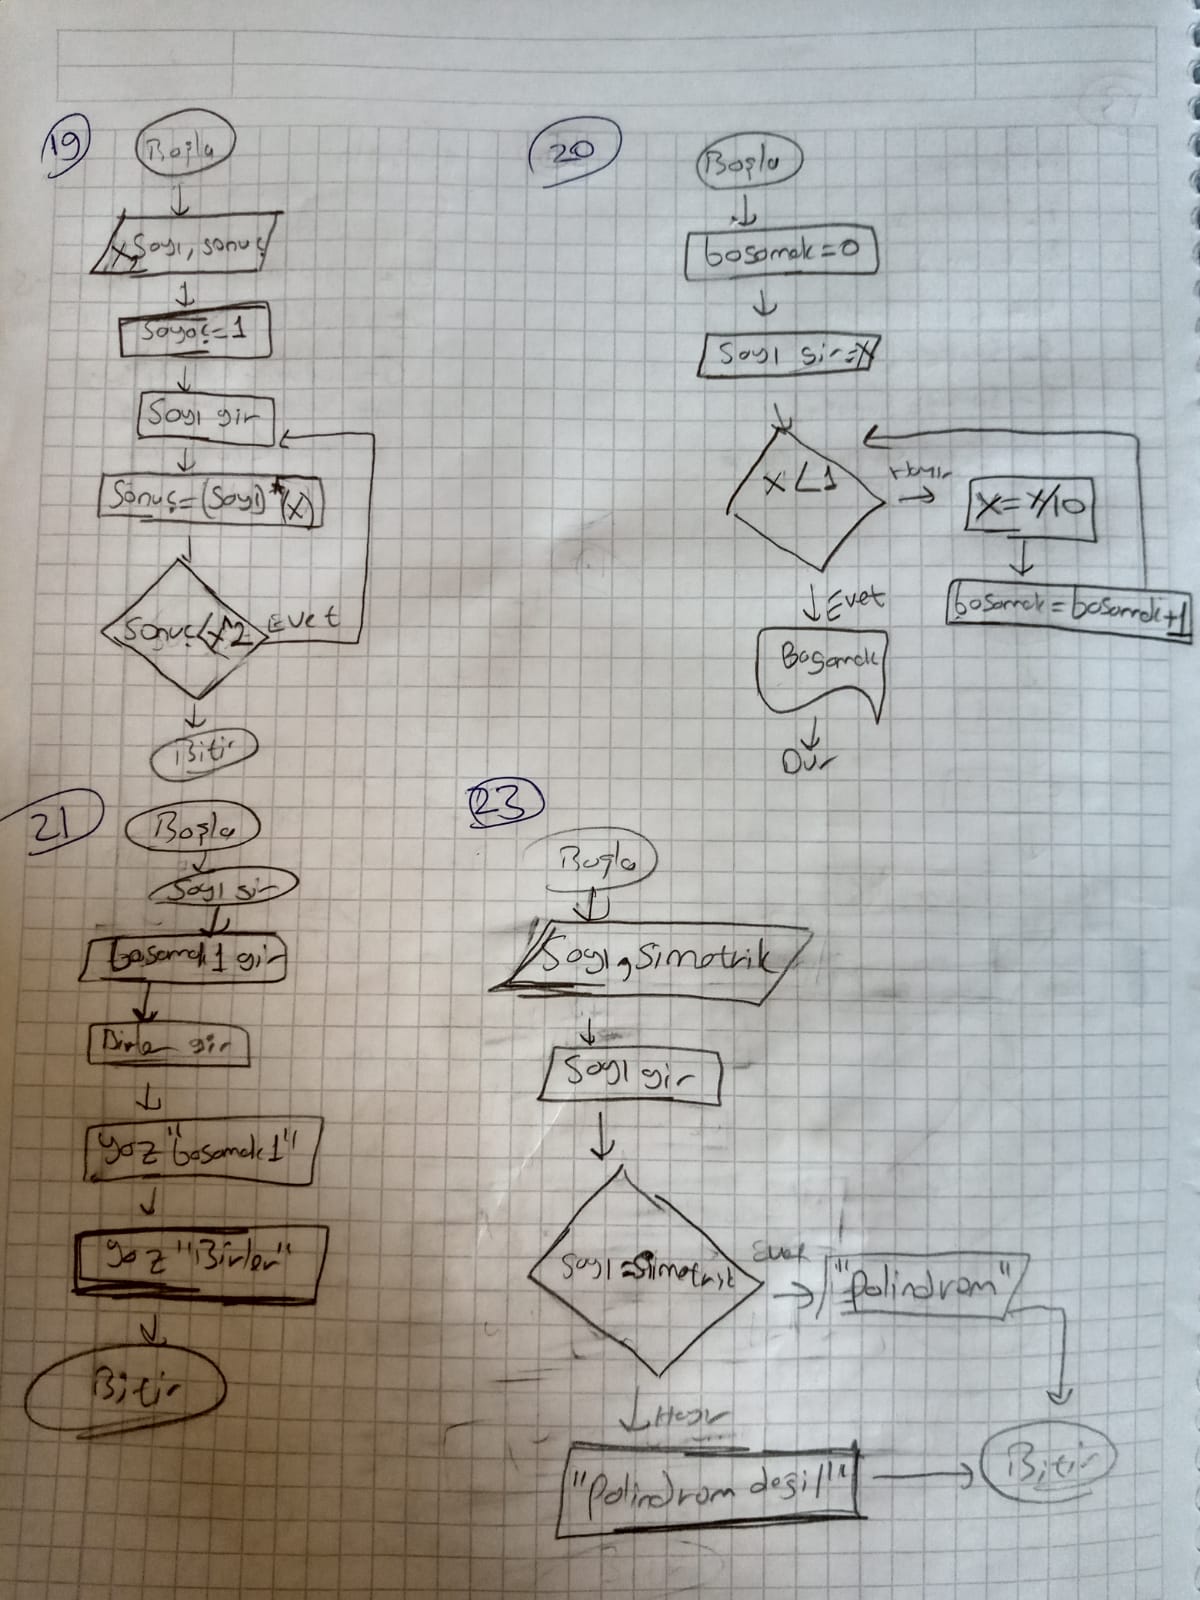 19
Başla
x, Sayı, sonuç
Sayaç=1
Sayı gir
Sonuç=(Sayı)*(x)
Sonuç<x^2
Evet
Bitir
20
Başla
basamak=0
Sayı gir=x
x<1
Hayır
x=x/10
basamak=basamak+1
Evet
Basamak
Dur
21
Başla
Sayı gir
basamak1 gir
Birler gir
yaz "basamak1"
yaz "Birler"
Bitir
23
Başla
Sayı, Simetrik
Sayı gir
Sayı=Simetrik
Evet
"Polindrom"
Hayır
"Polindrom değil"
Bitir